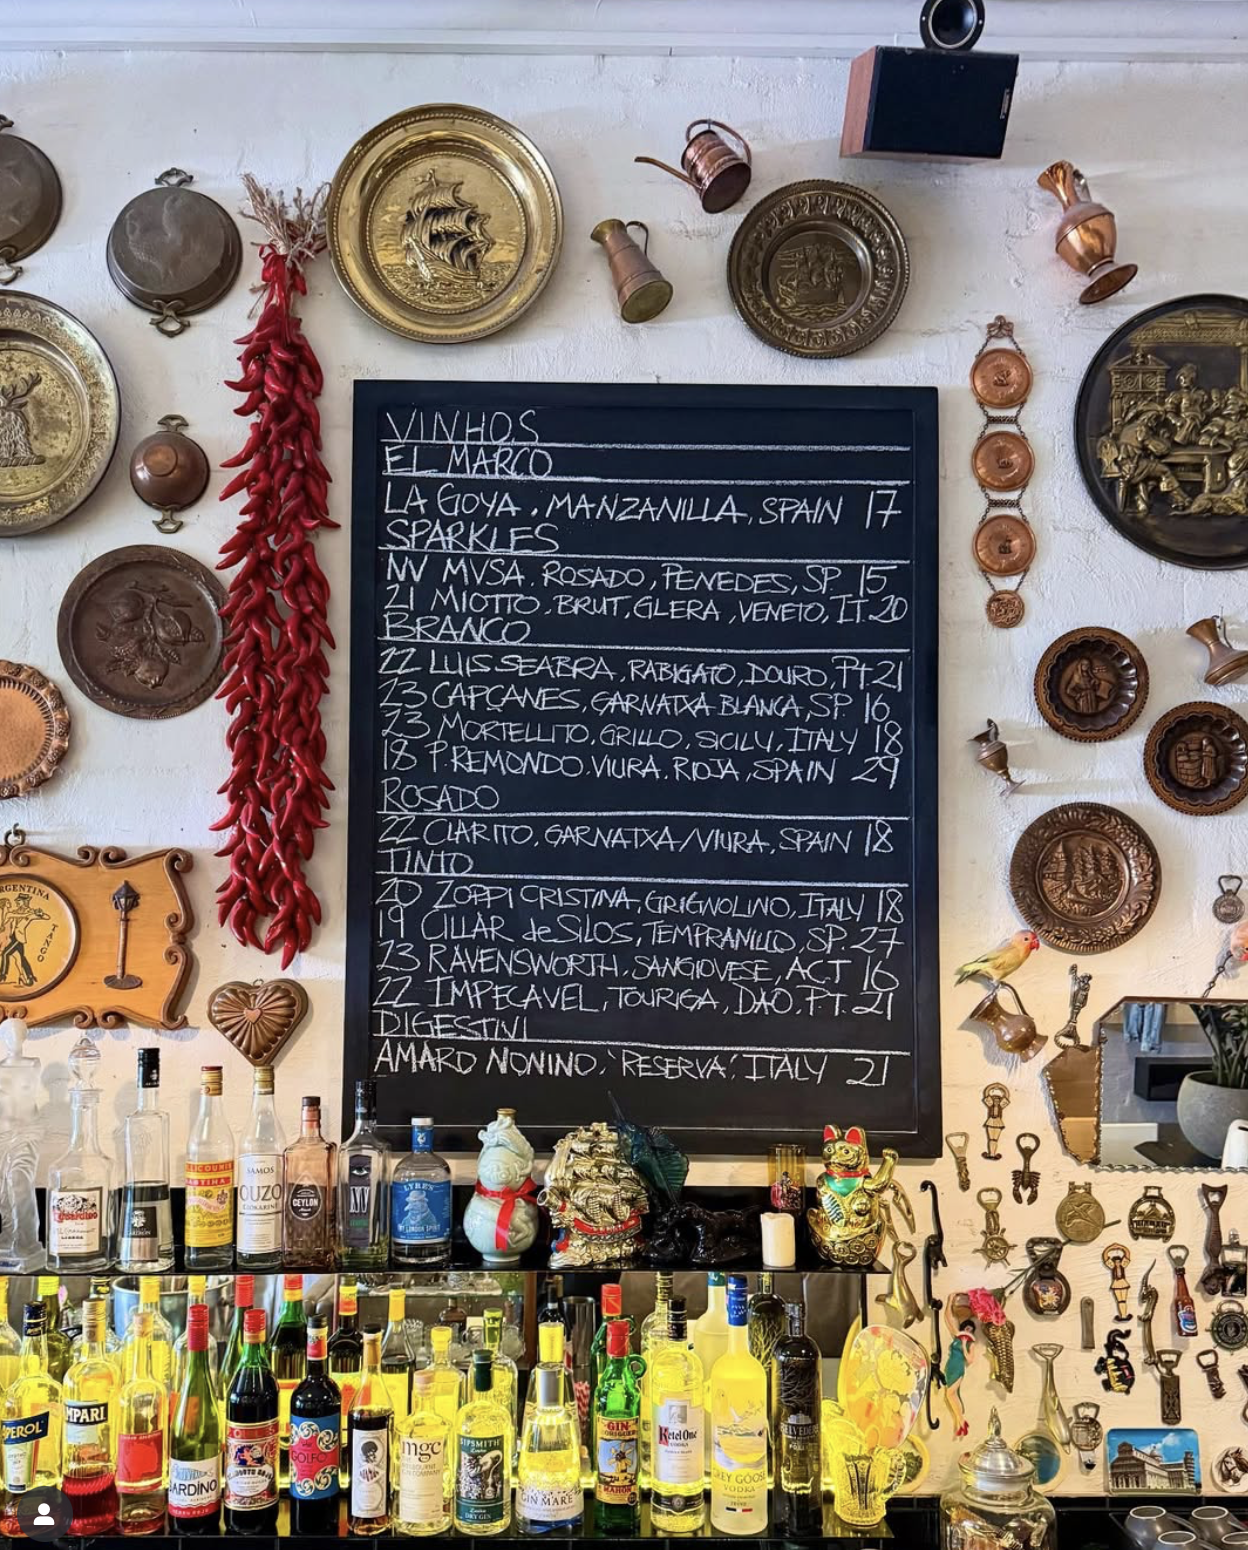 VINHOS
EL MARCO
LA GOYA, MANZANILLA, SPAIN 17
SPARKLES
NV MVSA, ROSADO, PENEDES, SP. 15
21 MIOTTO, BRUT, GLERA, VENETO, IT. 20
BRANCO
22 LUIS SEABRA, RABIGATO, DOURO, Pt 21
23 CAPÇANES, GARNATXA BLANCA, SP. 16
23 MORTELLITO, GRILLO, SICILY, ITALY 18
18 P. REMONDO, VIURA, RIOJA, SPAIN 29
ROSADO
22 CLARITO, GARNATXA/VIURA, SPAIN 18
TINTO
20 ZOPPI CRISTINA, GRIGNOLINO, ITALY 18
19 CILLÀR de SILOS, TEMPRANILLO, SP. 27
23 RAVENSWORTH, SANGIOVESE, ACT 16
22 IMPECAVEL, TOURIGA, DAO, P.T. 21
DIGESTIVI
AMARO NONINO, 'RESERVA', ITALY 21
ARGENTINA
TANGO
SAMOS
OUZO
CEYLON
LYRE'S
DRY LONDON SPIRIT
PEROL
MPARI
JARDINO
GOLFO
mgc
SIPSMITH
DRY GIN
GIN MARE
GIN
MAHON
Ketel One
VODKA
GREY GOOSE
VODKA
BELVEDERE